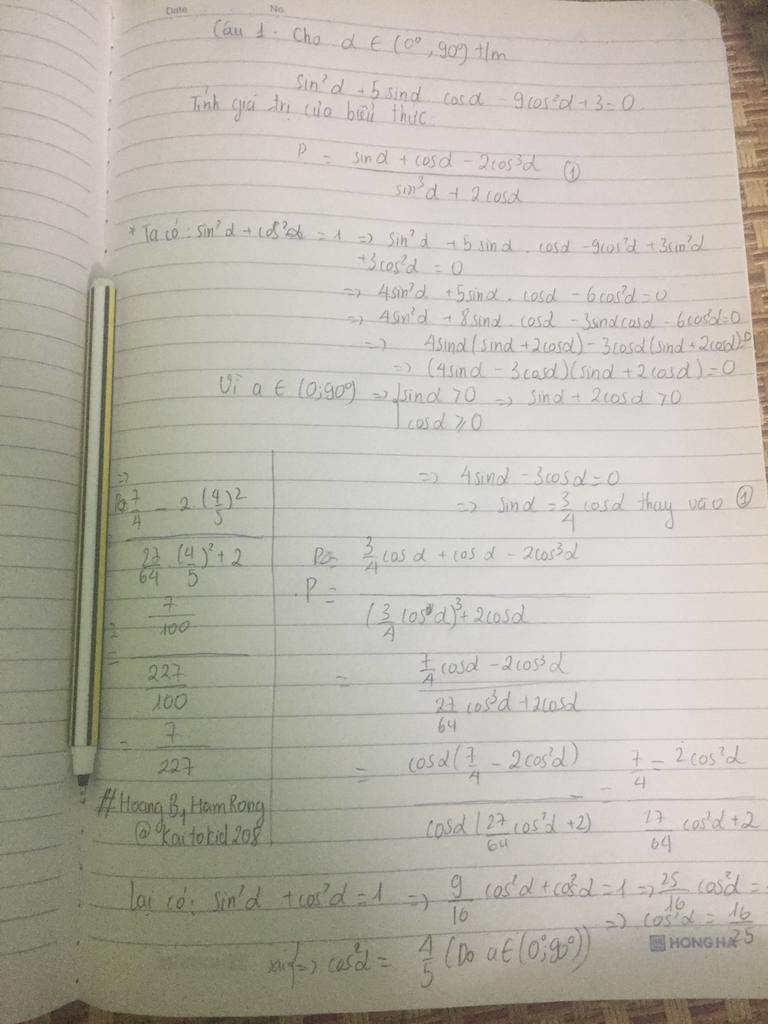 Date No.
Câu 1. Cho α ∈ (0°, 90°) t/m
sin²α + 5 sinα . cosα - 9cos²α + 3 = 0.
Tính giá trị của biểu thức
P = (sinα + cosα - 2cos³α) / (sin³α + 2cosα) ①
* Ta có: sin²α + cos²α = 1 => sin²α + 5 sinα . cosα - 9cos²α + 3sin²α
+3cos²α = 0
=> 4sin²α + 5sinα . cosα - 6cos²α = 0
=> 4sin²α + 8sinα . cosα - 3sinαcosα - 6cos²α = 0
=> 4sinα (sinα + 2cosα) - 3cosα (sinα + 2cosα) = 0
=> (4sinα - 3cosα)(sinα + 2cosα) = 0
Vì a ∈ (0; 90°) => { sinα > 0 => sinα + 2cosα > 0
cosα ≥ 0
=> 4sinα - 3cosα = 0
=> sinα = 3/4 cosα thay vào ①
P = (3/4 cosα + cosα - 2cos³α) / ((3/4 cosα)³ + 2cosα)
= (7/4 cosα - 2cos³α) / (27/64 cos³α + 2cosα)
= cosα(7/4 - 2cos²α) / cosα(27/64 cos²α + 2) = (7/4 - 2cos²α) / (27/64 cos²α + 2)
=>
(7/4 - 2.(4/5)²) / (27/64 (4/5)² + 2)
= (7/100) / (227/100)
= 7/227
#HoangB, HamRong
@kaitokid208
Lại có: sin²α + cos²α = 1 => 9/16 cos²α + cos²α = 1 => 25/16 cos²α =
=> cos²α = 16/25
=> cosα = 4/5 (Do a ∈ (0°; 90°))
HONG HA